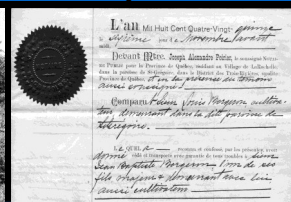 L'an Mil Huit Cent Quatre-Vingt- quinze
le sixième jour de Novembre avant
midi.
Devant Mtre. Joseph Alexandre Poirier, le soussigné Notaire
Public pour la Province de Québec, résidant au Village de
dans la paroisse de St-Grégoire, dans le District des Trois-Rivières,
Province de Québec, et en la présence du témoin
aussi soussigné:
Comparu: Sieur Louis Bergeron cultiva-
teur demeurant dans la dite paroisse de
St Grégoire.
LEQUEL a reconnu et confessé, par les présentes, avoir
donné cédé et transporté avec garantie de tous troubles à Sieur
Jean Baptiste Bergeron l'un de ses
fils majeurs & demeurant avec lui
aussi cultivateur